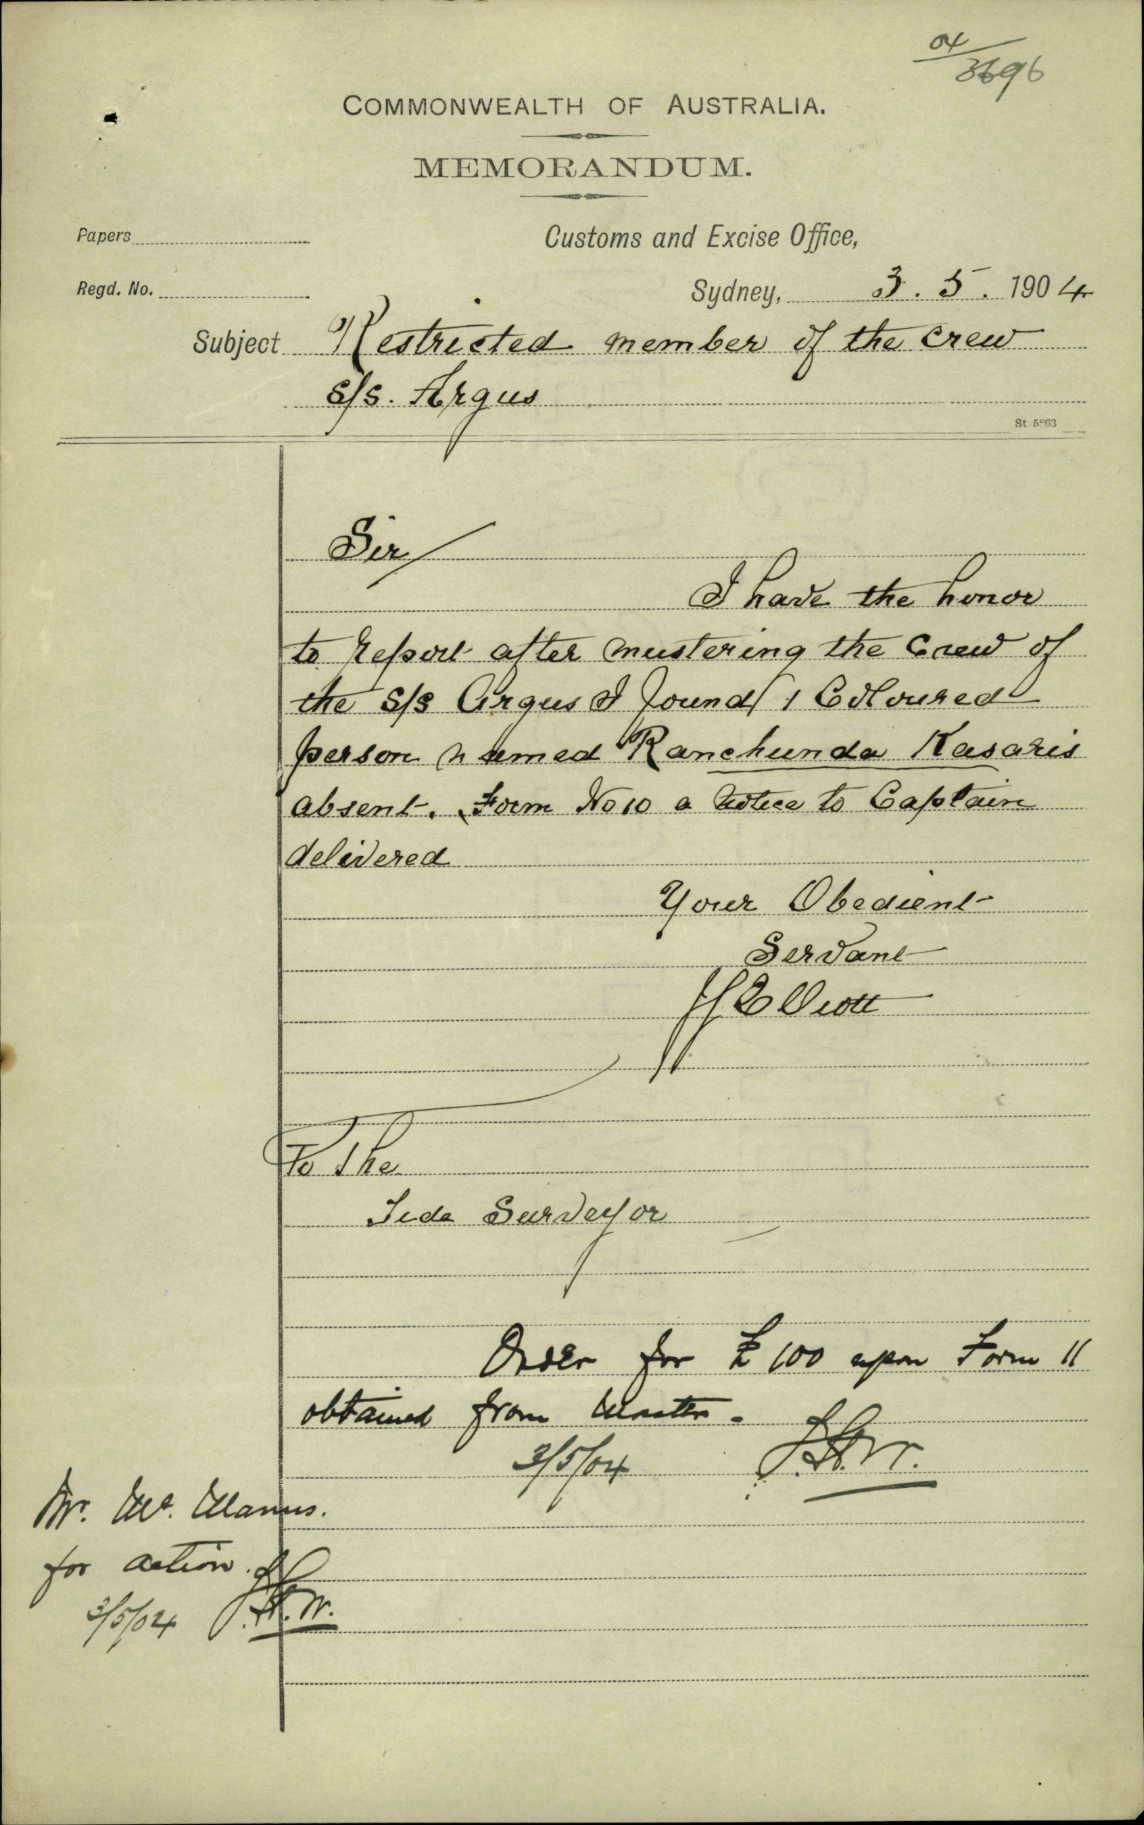 04/3696
COMMONWEALTH OF AUSTRALIA.
MEMORANDUM.
Papers
Customs and Excise Office,
Regd. No.
Sydney, 3. 5. 1904
Subject Restricted member of the crew
S/S. Argus
St. 5263
Sir/
I have the honor
to Report after mustering the Crew of
the S/S Argus I found 1 Coloured
person named Ranchunda Kasaris
absent. Form No 10 a Notice to Captain
delivered
Your Obedient
Servant
J Elliott
To The
Tide Surveyor
Order for £100 upon Form 11
obtained from Master.
3/5/04 J.H.W.
Mr. Mc. Manus.
for action.
3/5/04 J.H.W.